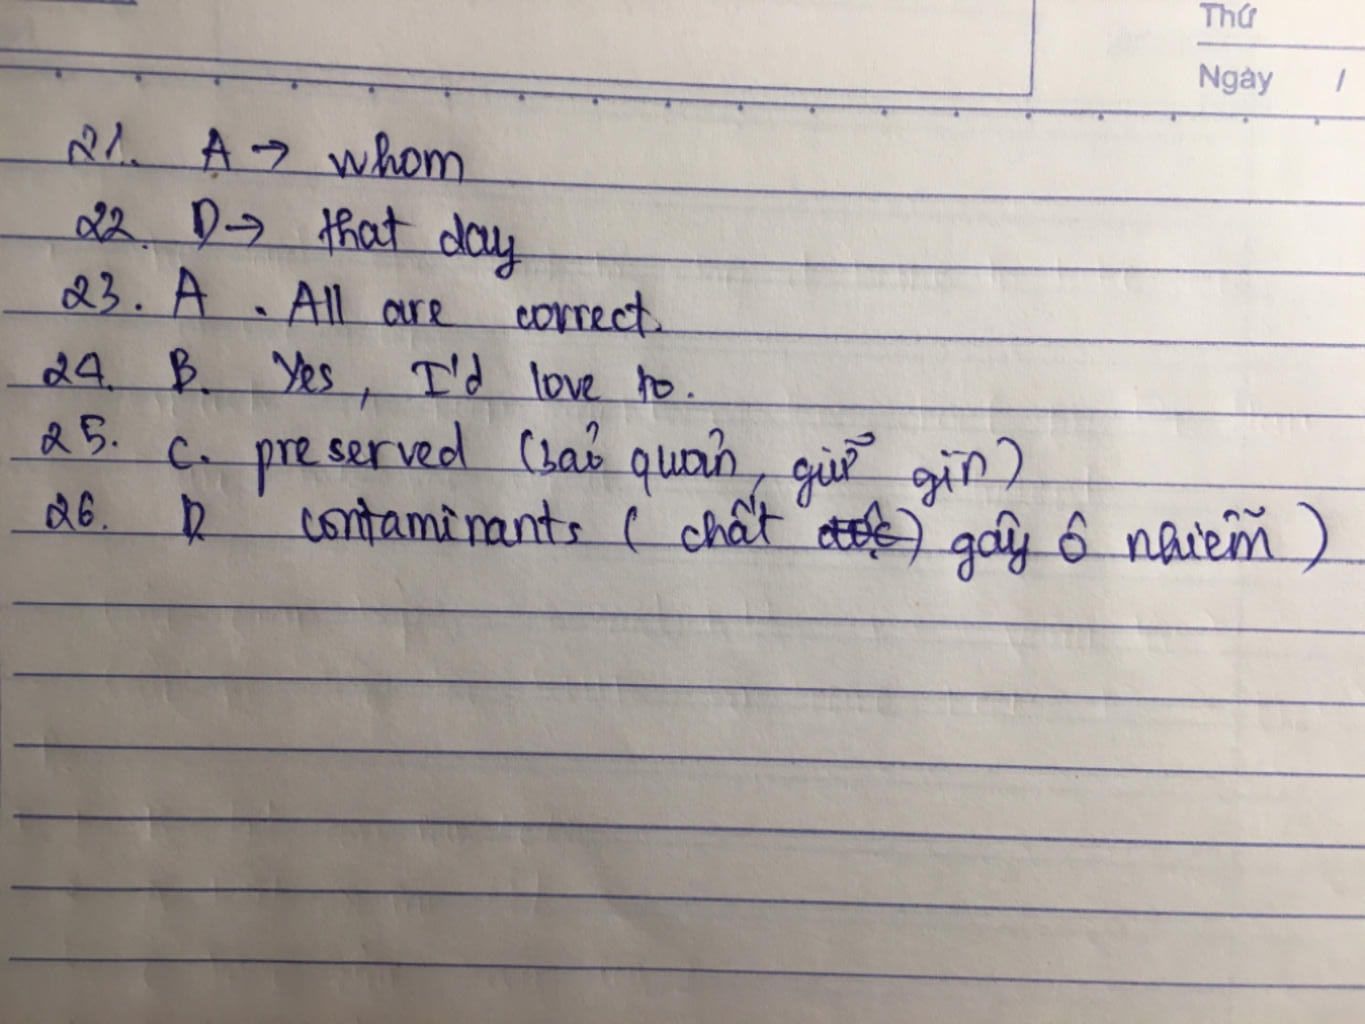 Thứ
Ngày /
21. A → whom
22. D → that day
23. A . All are correct.
24. B. Yes, I'd love to.
25. C. preserved (bảo quản, giữ gìn)
26. D contaminants ( chất gây ô nhiễm )